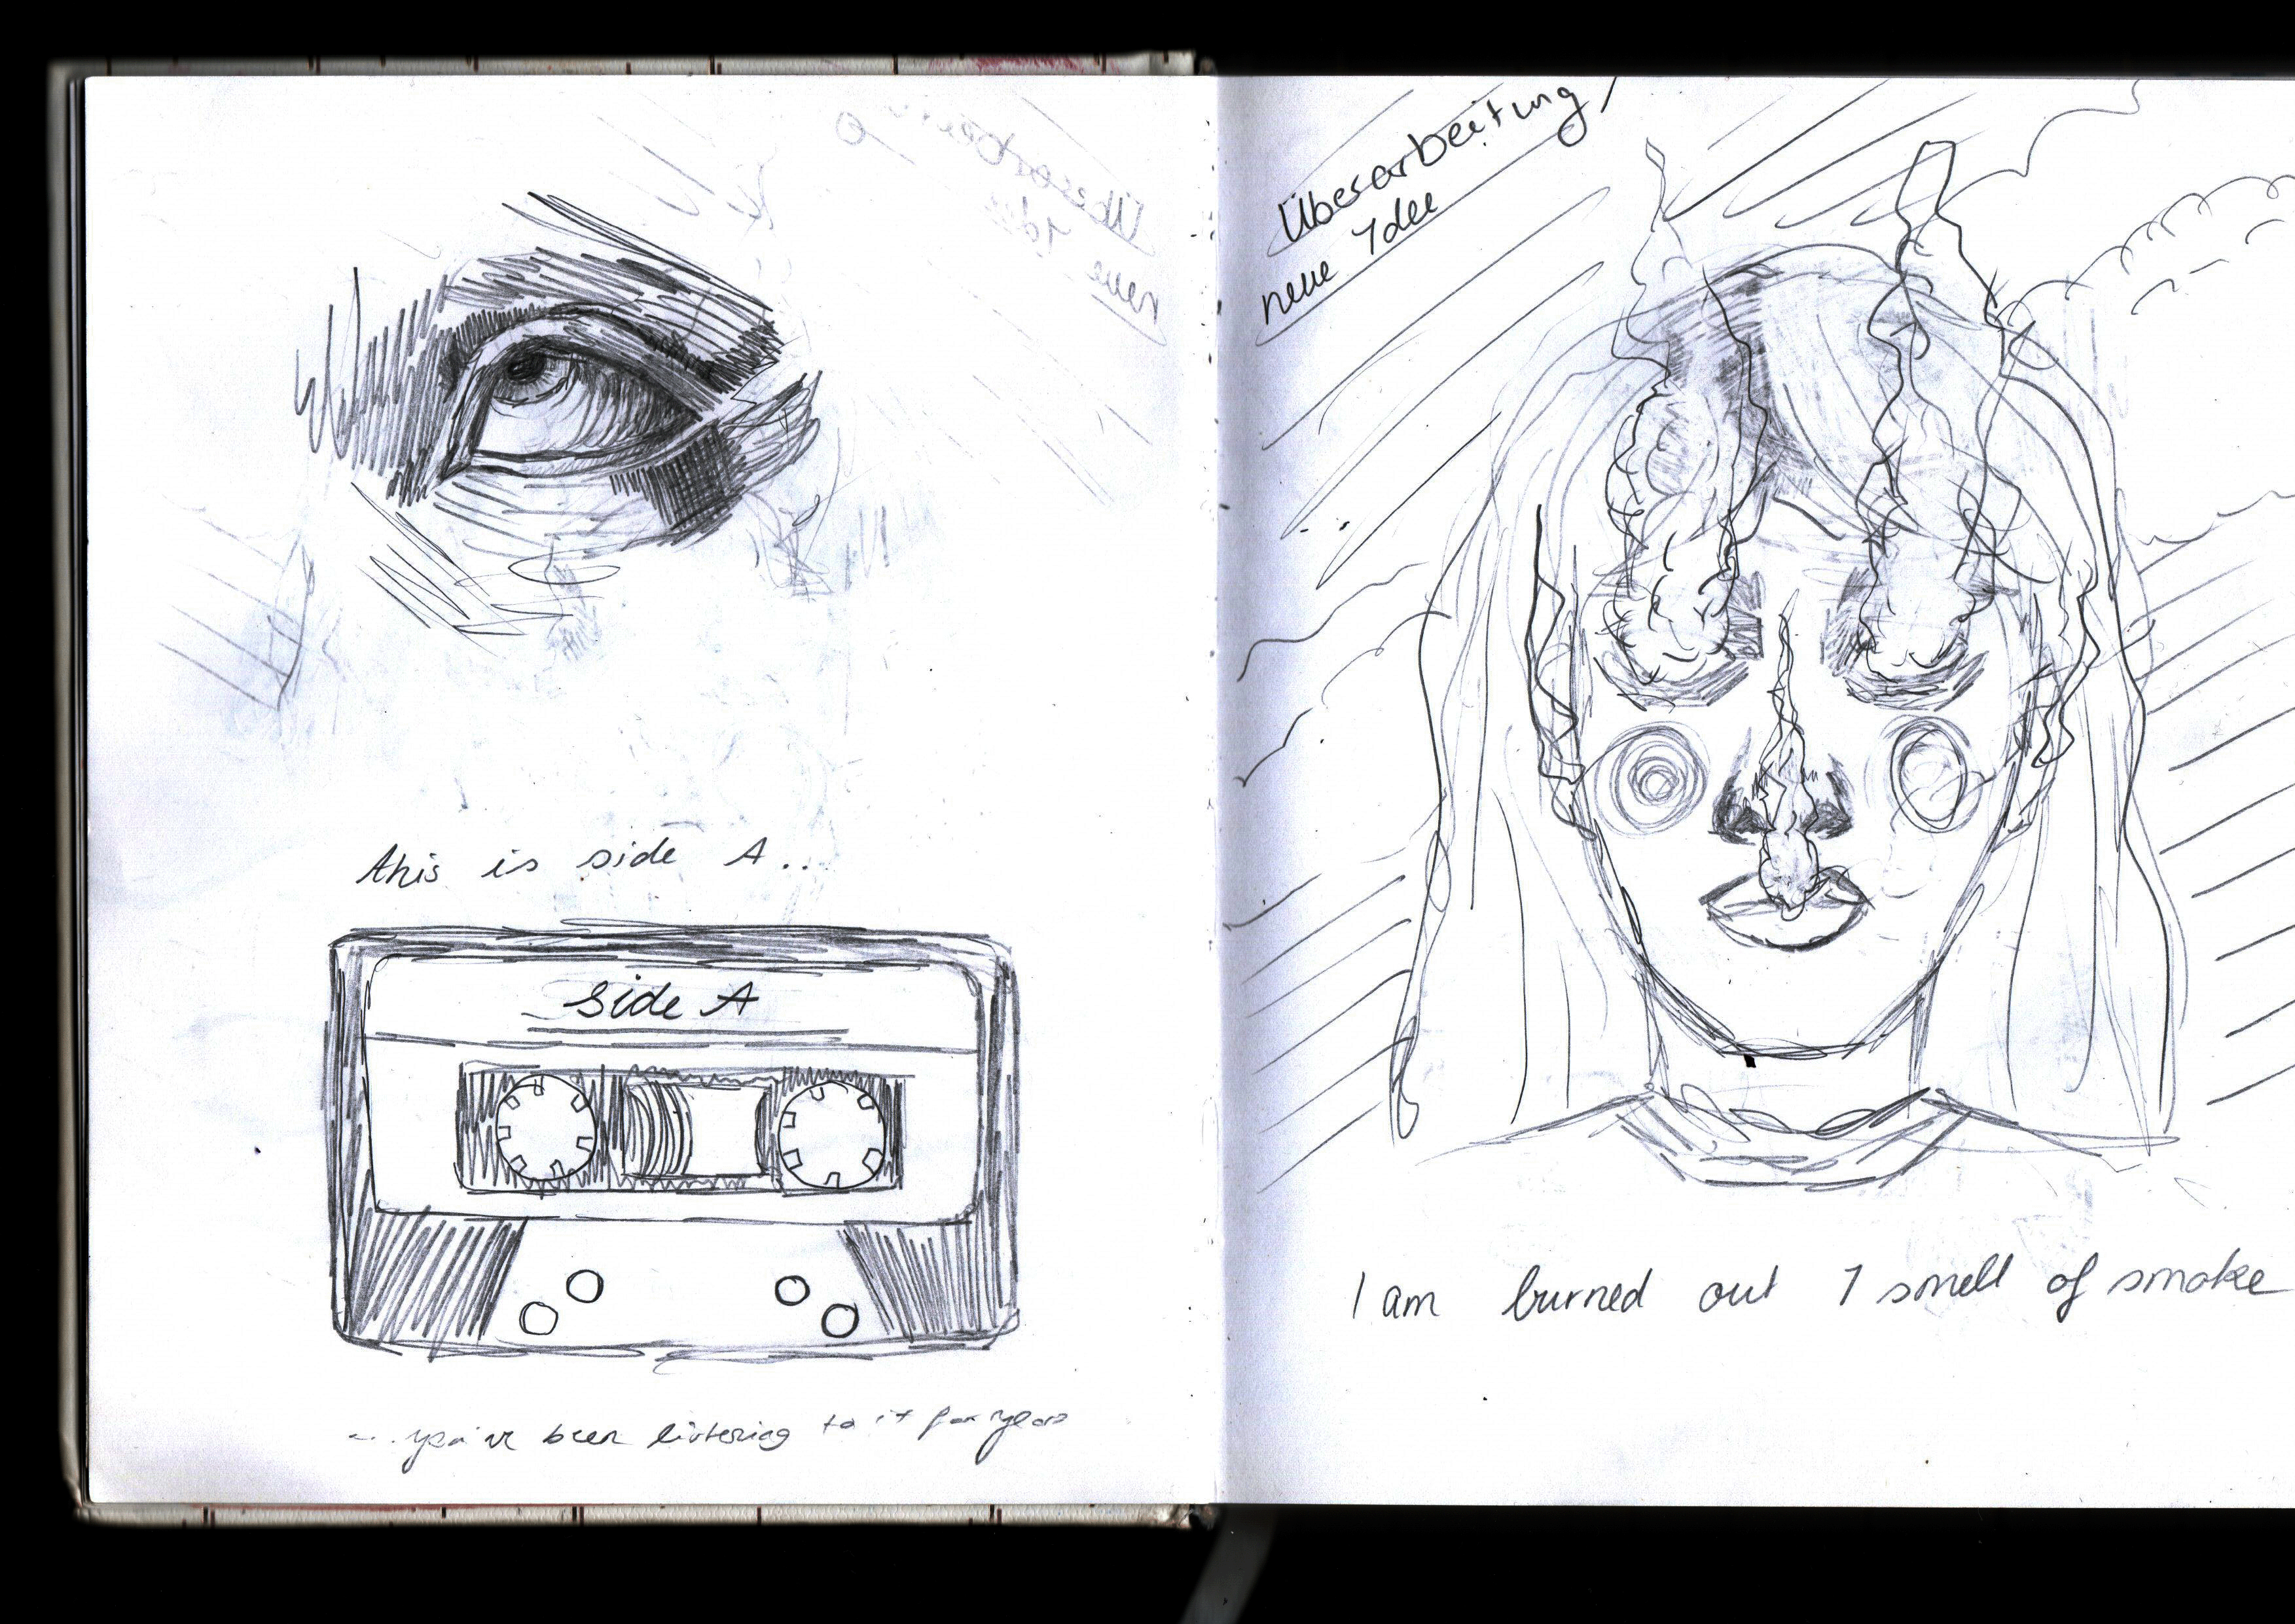 this is side A..
side A
...you've been listening to it for years
Überarbeitung
neue Idee
I am burned out I smell of smoke